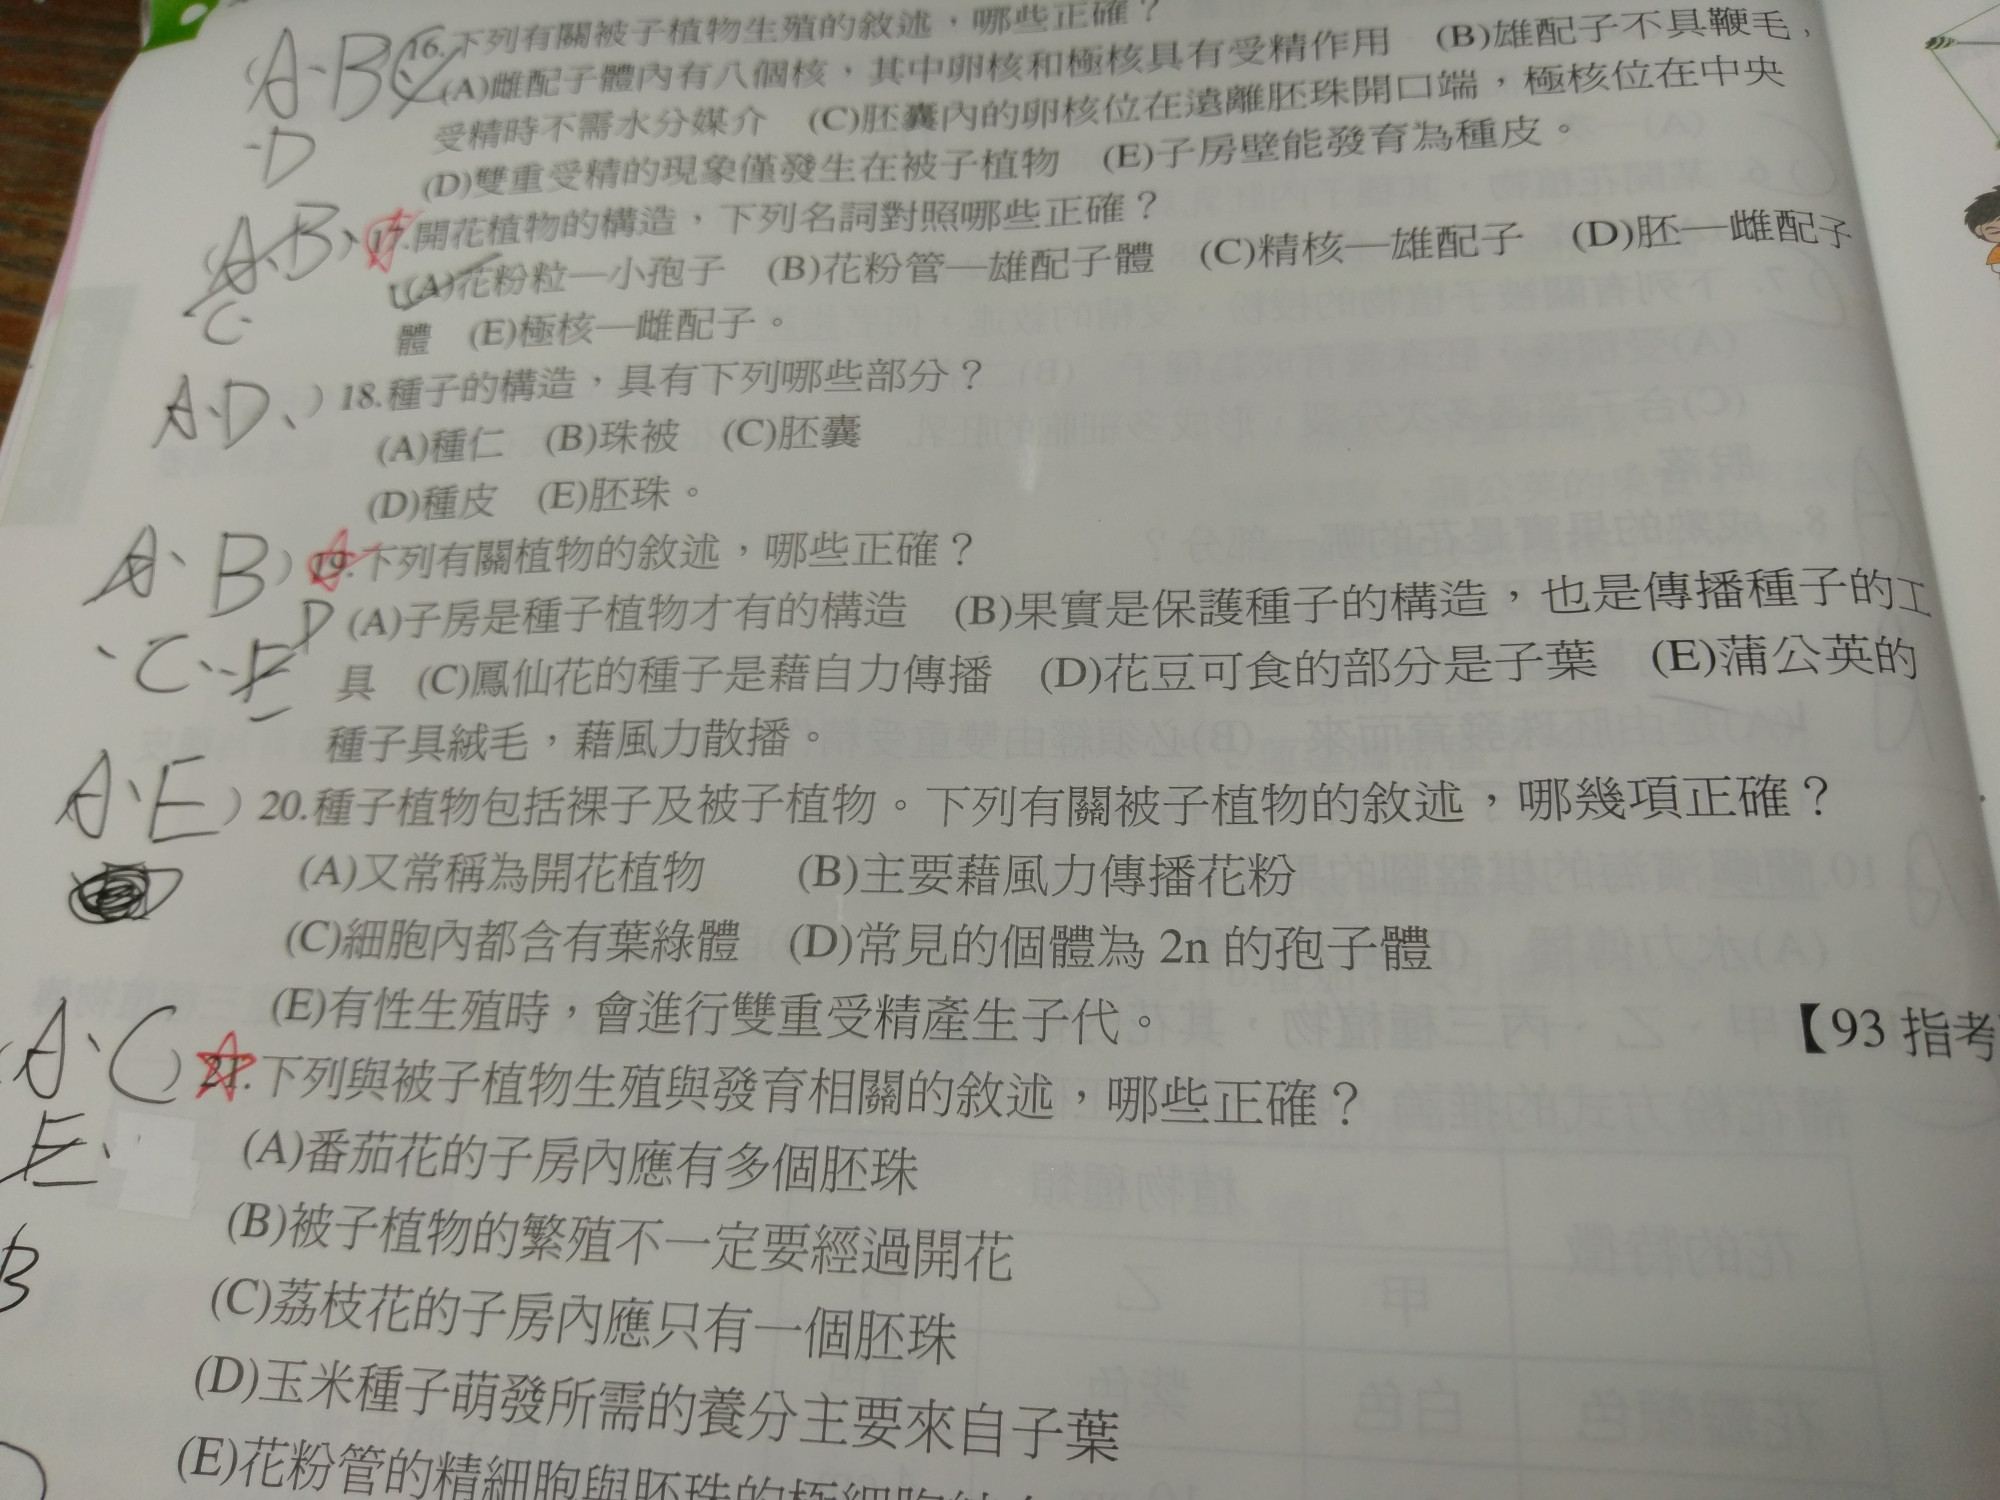 16.下列有關被子植物生殖的敘述，哪些正確？
(A)雌配子體內有八個核，其中卵核和極核具有受精作用 (B)雄配子不具鞭毛，
受精時不需水分媒介 (C)胚囊內的卵核位在遠離胚珠開口端，極核位在中央
(D)雙重受精的現象僅發生在被子植物 (E)子房壁能發育為種皮。
A、B
、D
17.開花植物的構造，下列名詞對照哪些正確？
(A)花粉粒—小孢子 (B)花粉管—雄配子體 (C)精核—雄配子 (D)胚—雌配子
體 (E)極核—雌配子。
A、B
、C
A、D、）18.種子的構造，具有下列哪些部分？
(A)種仁 (B)珠被 (C)胚囊
(D)種皮 (E)胚珠。
A、B）19.下列有關植物的敘述，哪些正確？
(A)子房是種子植物才有的構造 (B)果實是保護種子的構造，也是傳播種子的工
、C、E D
具 (C)鳳仙花的種子是藉自力傳播 (D)花豆可食的部分是子葉 (E)蒲公英的
種子具絨毛，藉風力散播。
A、E）20.種子植物包括裸子及被子植物。下列有關被子植物的敘述，哪幾項正確？
(A)又常稱為開花植物 (B)主要藉風力傳播花粉
(C)細胞內都含有葉綠體 (D)常見的個體為 2n 的孢子體
(E)有性生殖時，會進行雙重受精產生子代。
【93 指考
A、C）21.下列與被子植物生殖與發育相關的敘述，哪些正確？
E、
(A)番茄花的子房內應有多個胚珠
(B)被子植物的繁殖不一定要經過開花
B
(C)荔枝花的子房內應只有一個胚珠
(D)玉米種子萌發所需的養分主要來自子葉
(E)花粉管的精細胞與胚珠的極細胞